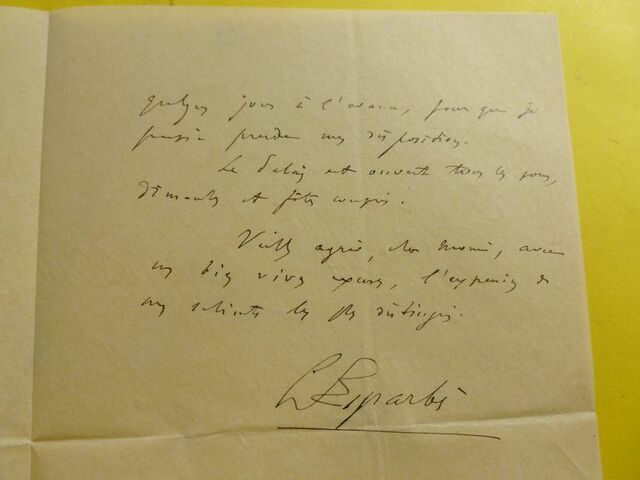 quelques jours à l'avance, pour que je
puisse prendre mes dispositions.
Le Palais est ouvert tous les jours,
dimanches et fêtes compris.
Veuillez agréer, cher Monsieur, avec
mes bien vives excuses, l'expression de
mes sentiments les plus distingués.